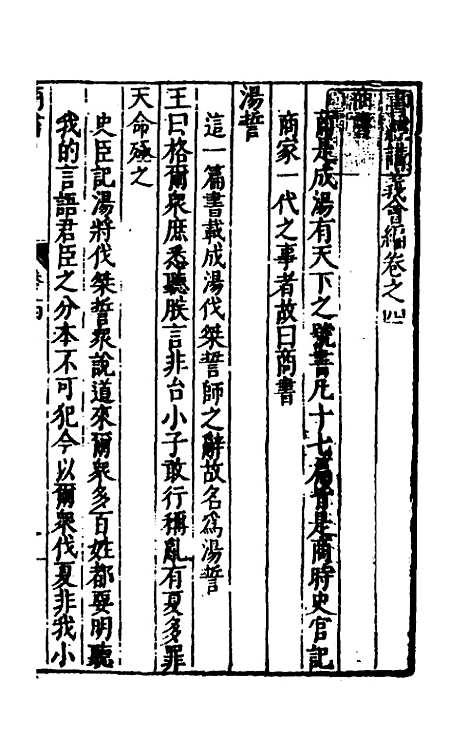 書經講義會編卷之四
商書
商是成湯有天下之號書凡十七篇皆是商時史官記
商家一代之事者故曰商書
湯誓
這一篇書載成湯伐桀誓師之辭故名爲湯誓
王曰格爾衆庶悉聽朕言非台小子敢行稱亂有夏多罪
天命殛之
史臣記湯將伐桀誓衆說道來爾衆多百姓都要明聽
我的言語君臣之分本不可犯今以爾衆伐夏非我小